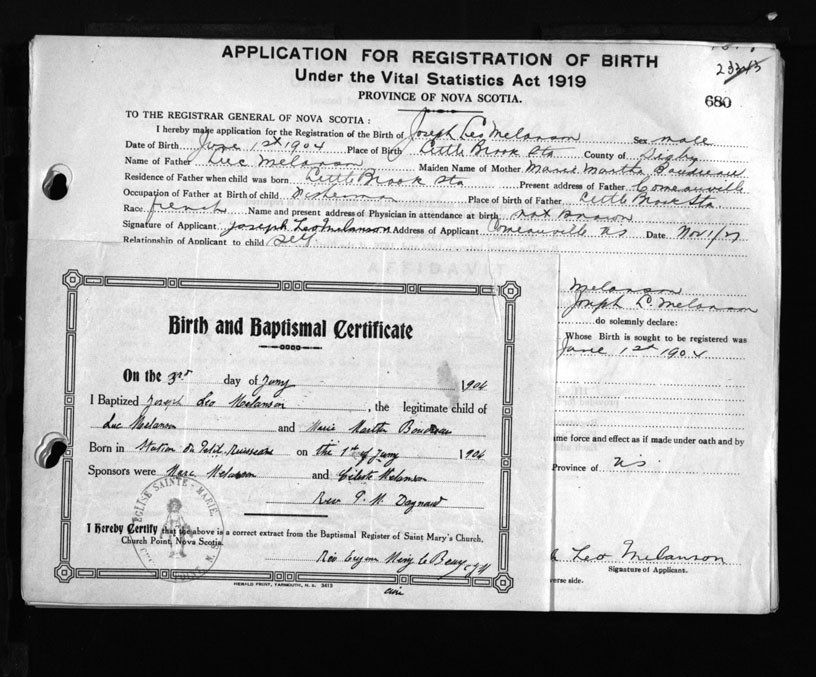 APPLICATION FOR REGISTRATION OF BIRTH
Under the Vital Statistics Act 1919
PROVINCE OF NOVA SCOTIA.
680
TO THE REGISTRAR GENERAL OF NOVA SCOTIA :
I hereby make application for the Registration of the Birth of Joseph Leo Melanson Sex male
Date of Birth June 1st 1904 Place of Birth Little Brook Sta County of Digby
Name of Father Luc Melanson Maiden Name of Mother Marie Martha Boudreau
Residence of Father when child was born Little Brook Sta Present address of Father Comeauville
Occupation of Father at Birth of child Fisherman Place of birth of Father Little Brook Sta.
Race french Name and present address of Physician in attendance at birth not known
Signature of Applicant Joseph Leo Melanson Address of Applicant Comeauville NS Date Nov 1/27
Relationship of Applicant to child Self
AFFIDAVIT
Melanson
Joseph L. Melanson
do solemnly declare:
Whose Birth is sought to be registered was
June 1st 1904
me force and effect as if made under oath and by
Province of NS
Leo Melanson
Signature of Applicant.
verse side.
Birth and Baptismal Certificate
On the 3rd day of Juny 1904
I Baptized Joseph Leo Melanson, the legitimate child of
Luc Melanson and Marie Martha Boudreau
Born in Station du Petit Ruisseau on the 1st of Juny 1904
Sponsors were Marc Melanson and Céleste Melanson
Rev P. M. Dagnaud
I Hereby Certify that the above is a correct extract from the Baptismal Register of Saint Mary's Church,
Church Point, Nova Scotia.
Rev Eugene
curé
EGLISE SAINTE-MARIE
HERALD PRINT, YARMOUTH, N. S. 3413